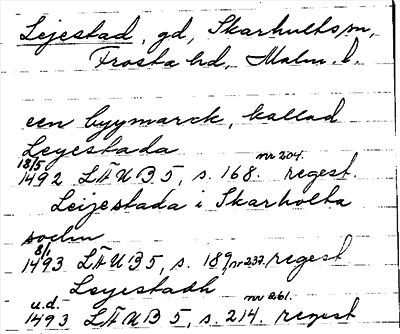 Lejestad, gd, Skarhults sn,
Frosta hd, Malm. l.
een byymarck, kallad
Leyestada
18/5 1492 LÄUB 5, s. 168. nr 204. regest.
Leijestada i Skarholta
sochn
8/1 1493 LÄUB 5, s. 189, nr 237. regest
Leyestadh
u.d. 1493 LÄUB 5, s. 214. nr 261. regest